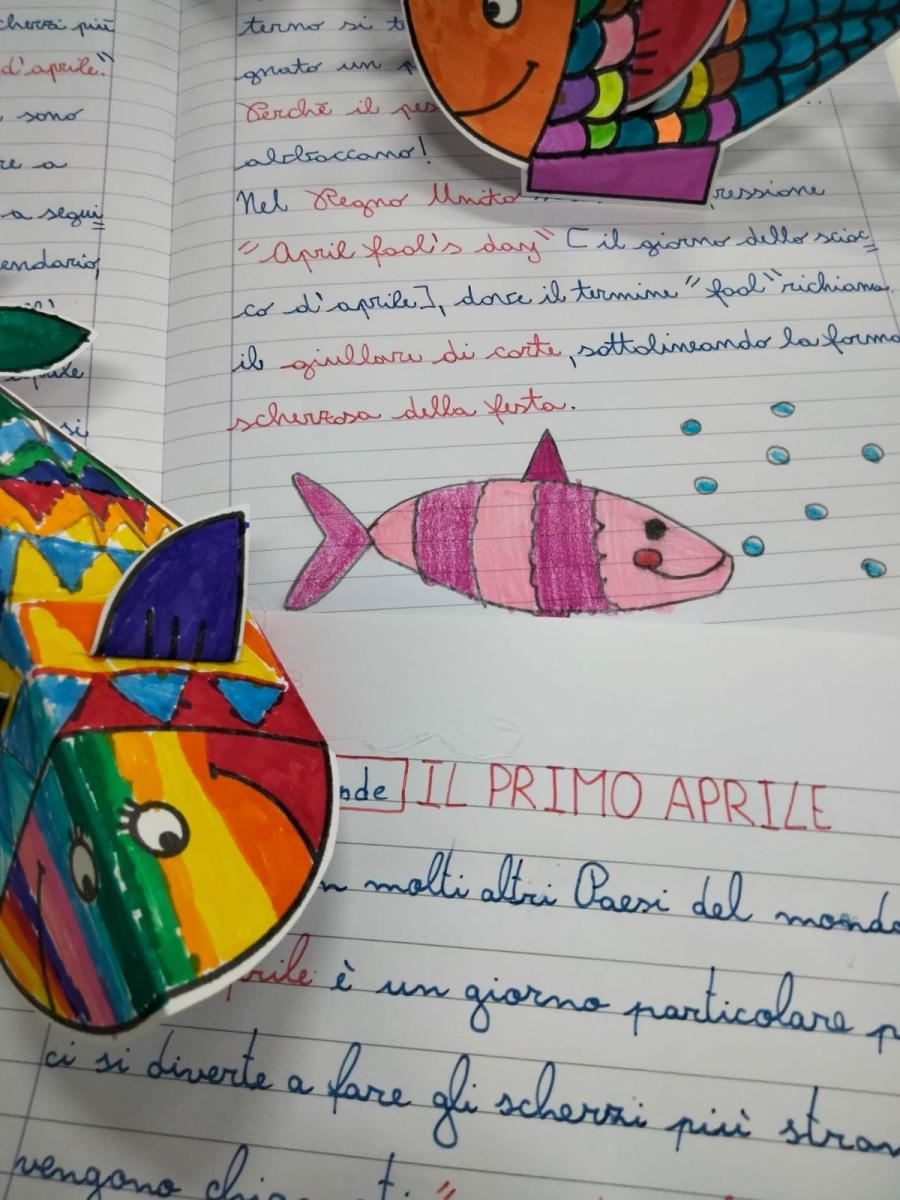 cherzi più
d'aprile."
sono
re a
a segui
endario,
si
terno si t
gnato un
Perchè il pes
abboccano!
Nel Regno Unito ressione
"April fool's day" [il giorno dello scioc
co d'aprile], dove il termine "fool" richiama
il giullare di corte, sottolineando la forma
scherzosa della festa.
nde IL PRIMO APRILE
n molti altri Paesi del mondo
prile è un giorno particolare p
ci si diverte a fare gli scherzi più stran
vengono